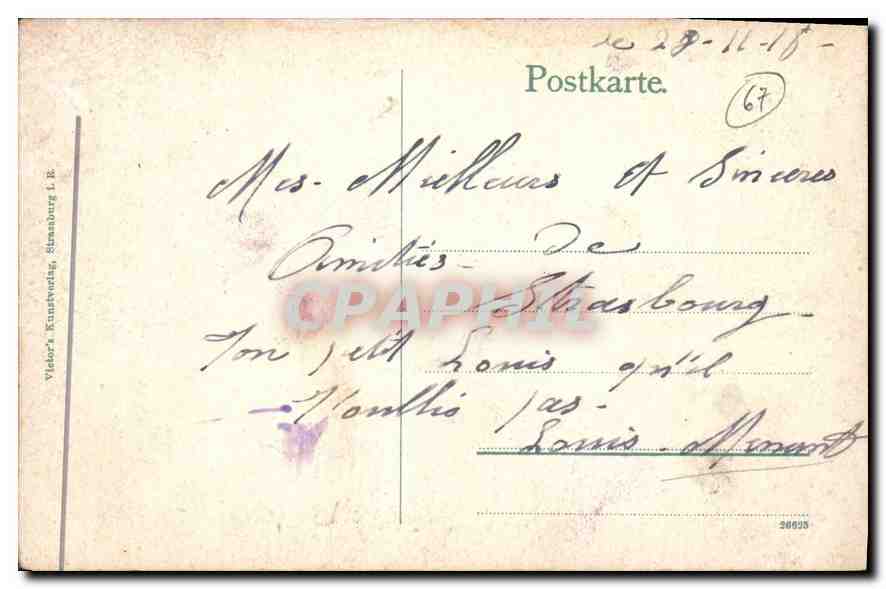 le 29-11-18-
Postkarte.
67
Mes-Meilleurs et Sinceres
Amitiés- de
Strasbourg
Ton petit Louis qu'il
t'oublis pas-
Louis-Menant
Victor's Kunstverlag, Strassburg i. E.
CPAPHIL
26625